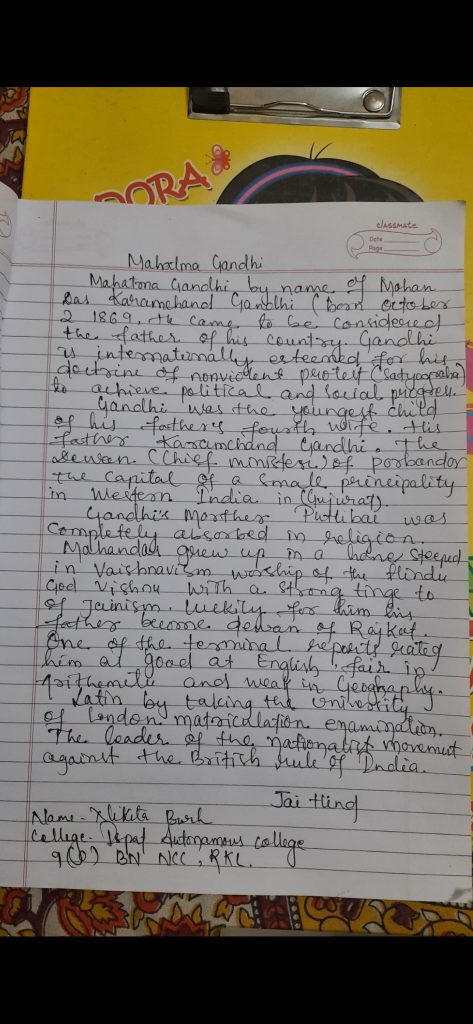 DORA
classmate
Date
Page
Mahatma Gandhi
Mahatma Gandhi by name of Mohan
das Karamchand Gandhi (born October
2 1869. He came to be considered
the father of his country. Gandhi
is internationally esteemed for his
doctrine of nonviolent protest (Satyagraha)
to achieve political and social progress.
Gandhi was the youngest child
of his father's fourth wife. His
father Karamchand Gandhi. The
dewan (Chief minister) of porbandor
the capital of a small principality
in Western India in (Gujurat).
Gandhi's Morther Putlibai was
completely absorbed in religion.
Mohandas grew up in a home steeped
in Vaishnavism worship of the Hindu
God Vishnu with a strong tinge to
of Jainism. Luckily for him his
father become dewan of Rajkat.
One of the terminal reports rated
him as good at English, fair in
Arithemetic and weak in Geography.
Latin by taking the University
of London matriculation examination.
The leader of the nationalist movement
against the British rule of India.
Jai Hind
Name - Nikita
College - Ispat Autonamous college
9(O) BN NCC, RKL.